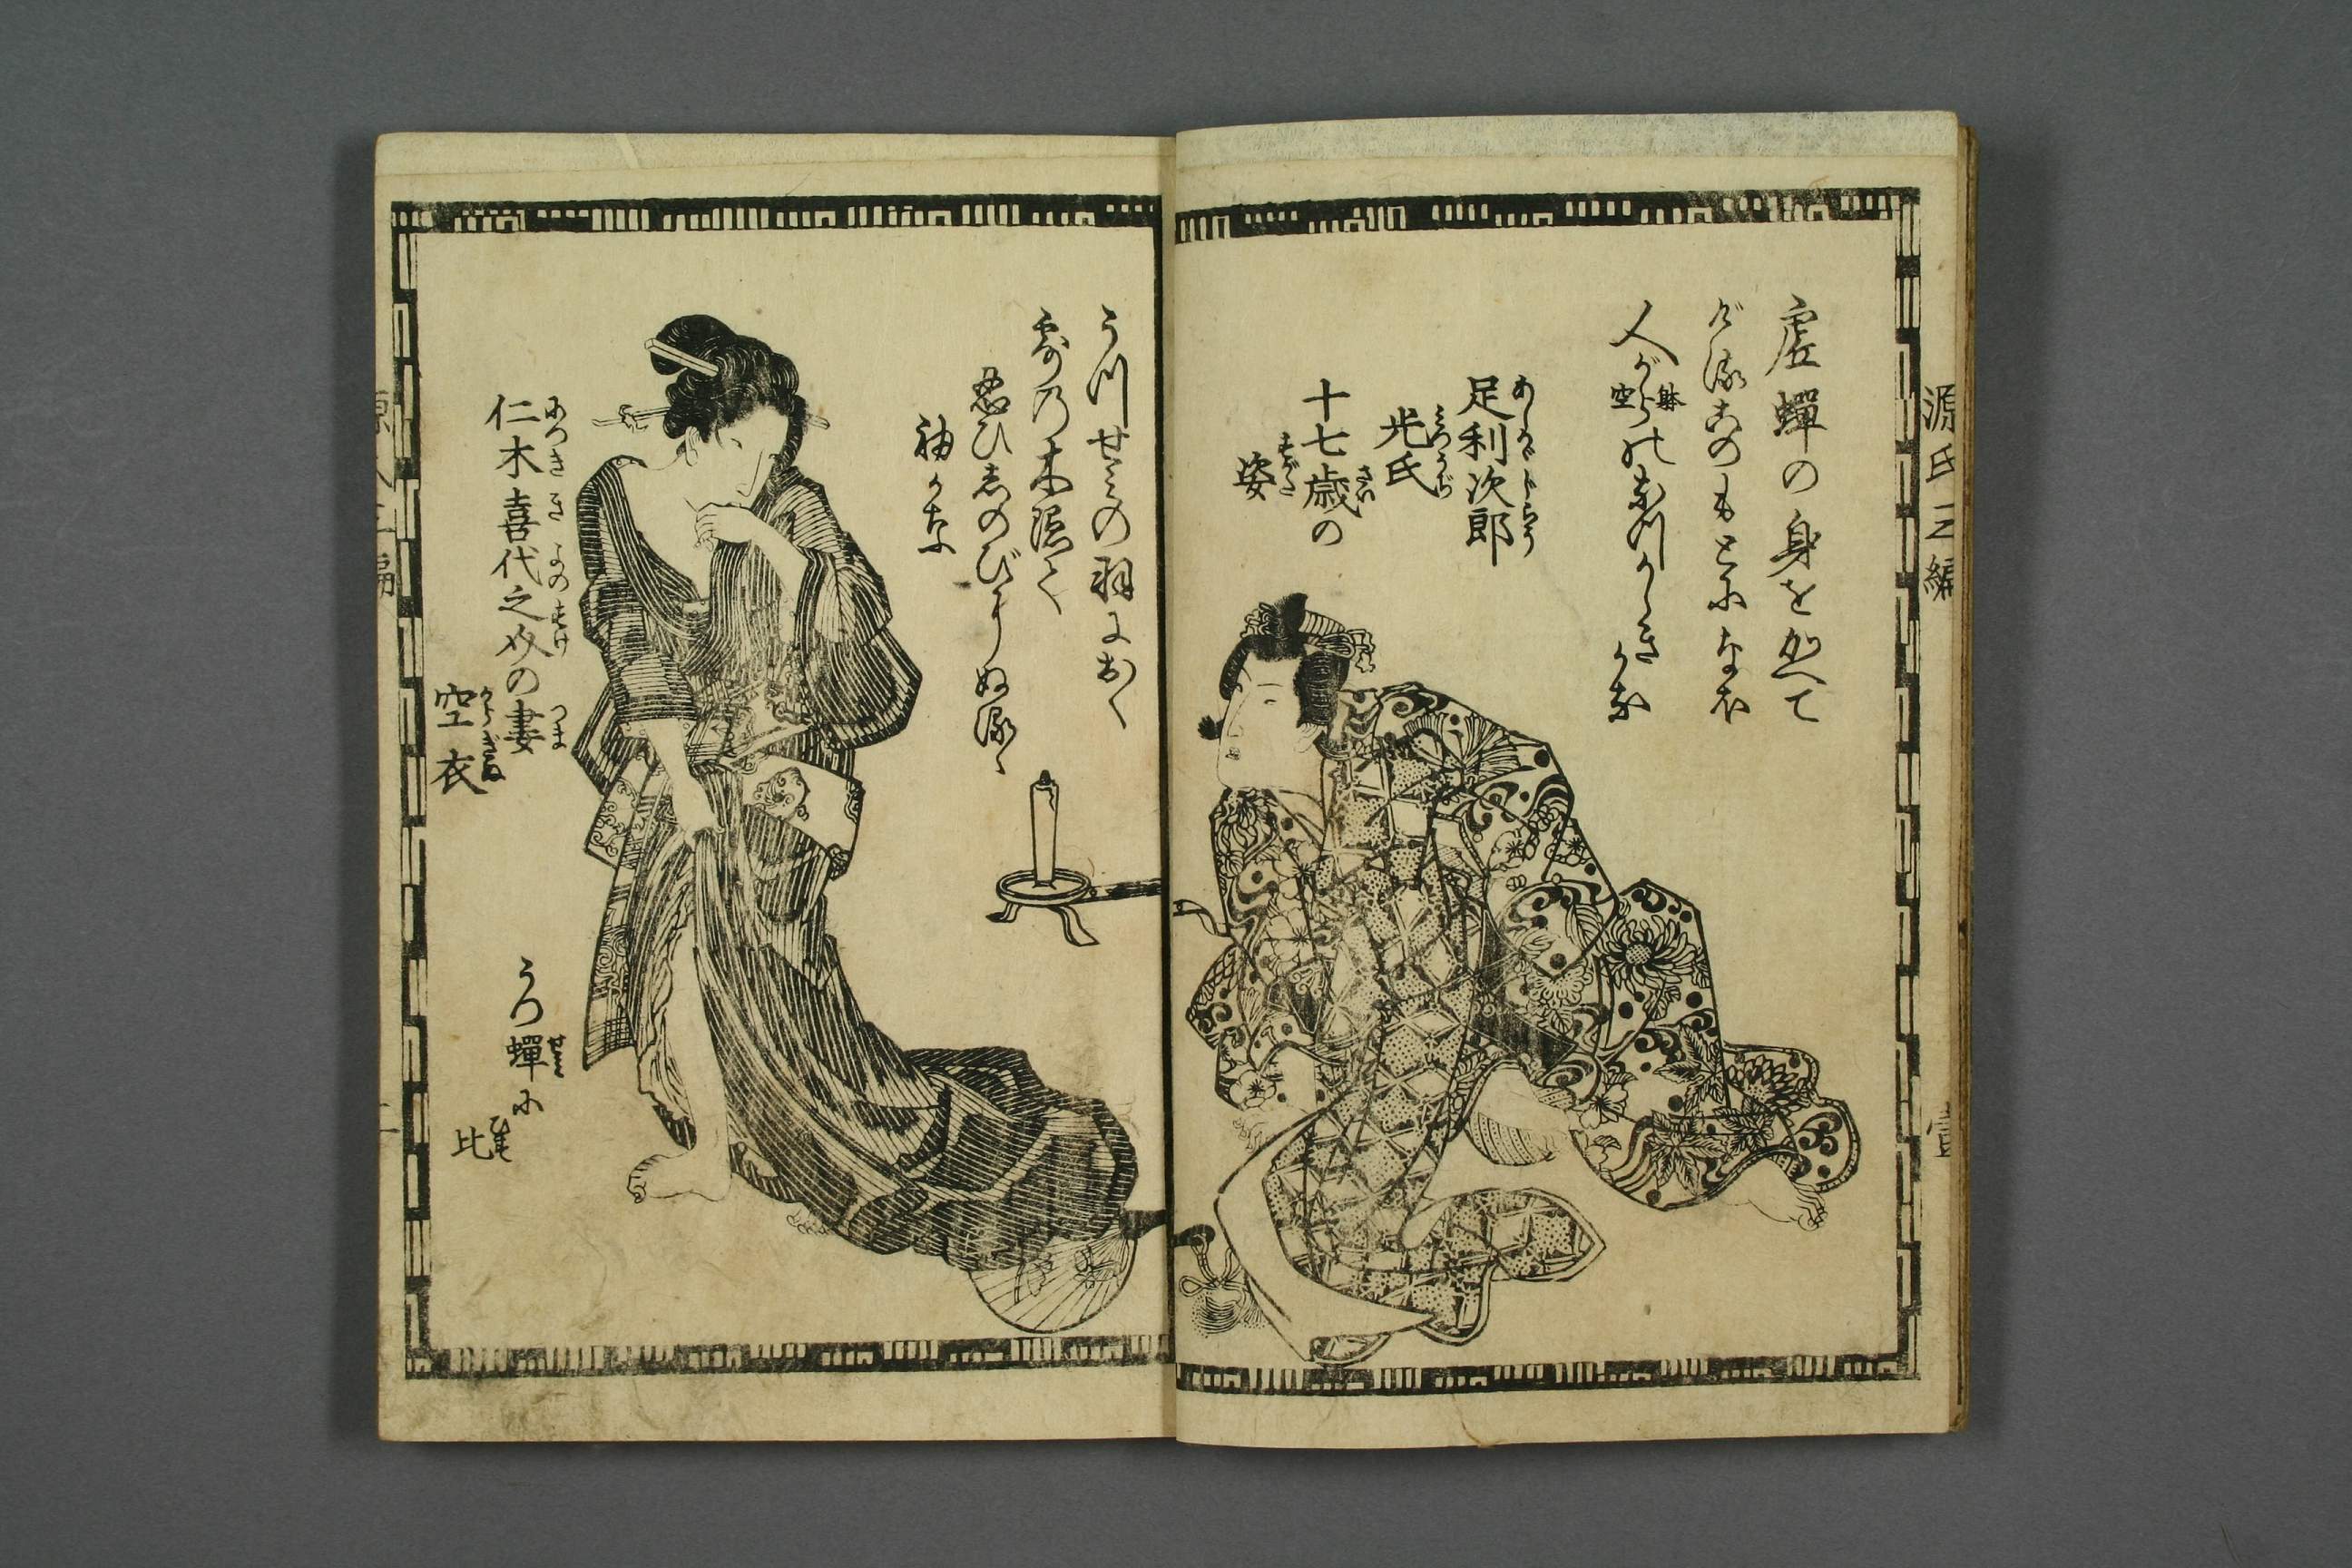 源氏三編
壹
虚蟬の身をかへて
げるこのもとになを
人がらのなつかしきかな
躰
空
あしかゞじらう
足利次郎
みつうぢ
光氏
さい
十七歳の
すがた
姿
うつせみの羽におく
露の木隠て
忍ひしのびにぬるゝ
袖かな
につききよのすけ つま
仁木喜代之介の妻
からぎぬ
空衣
せみ
うつ蟬に
ひす
比